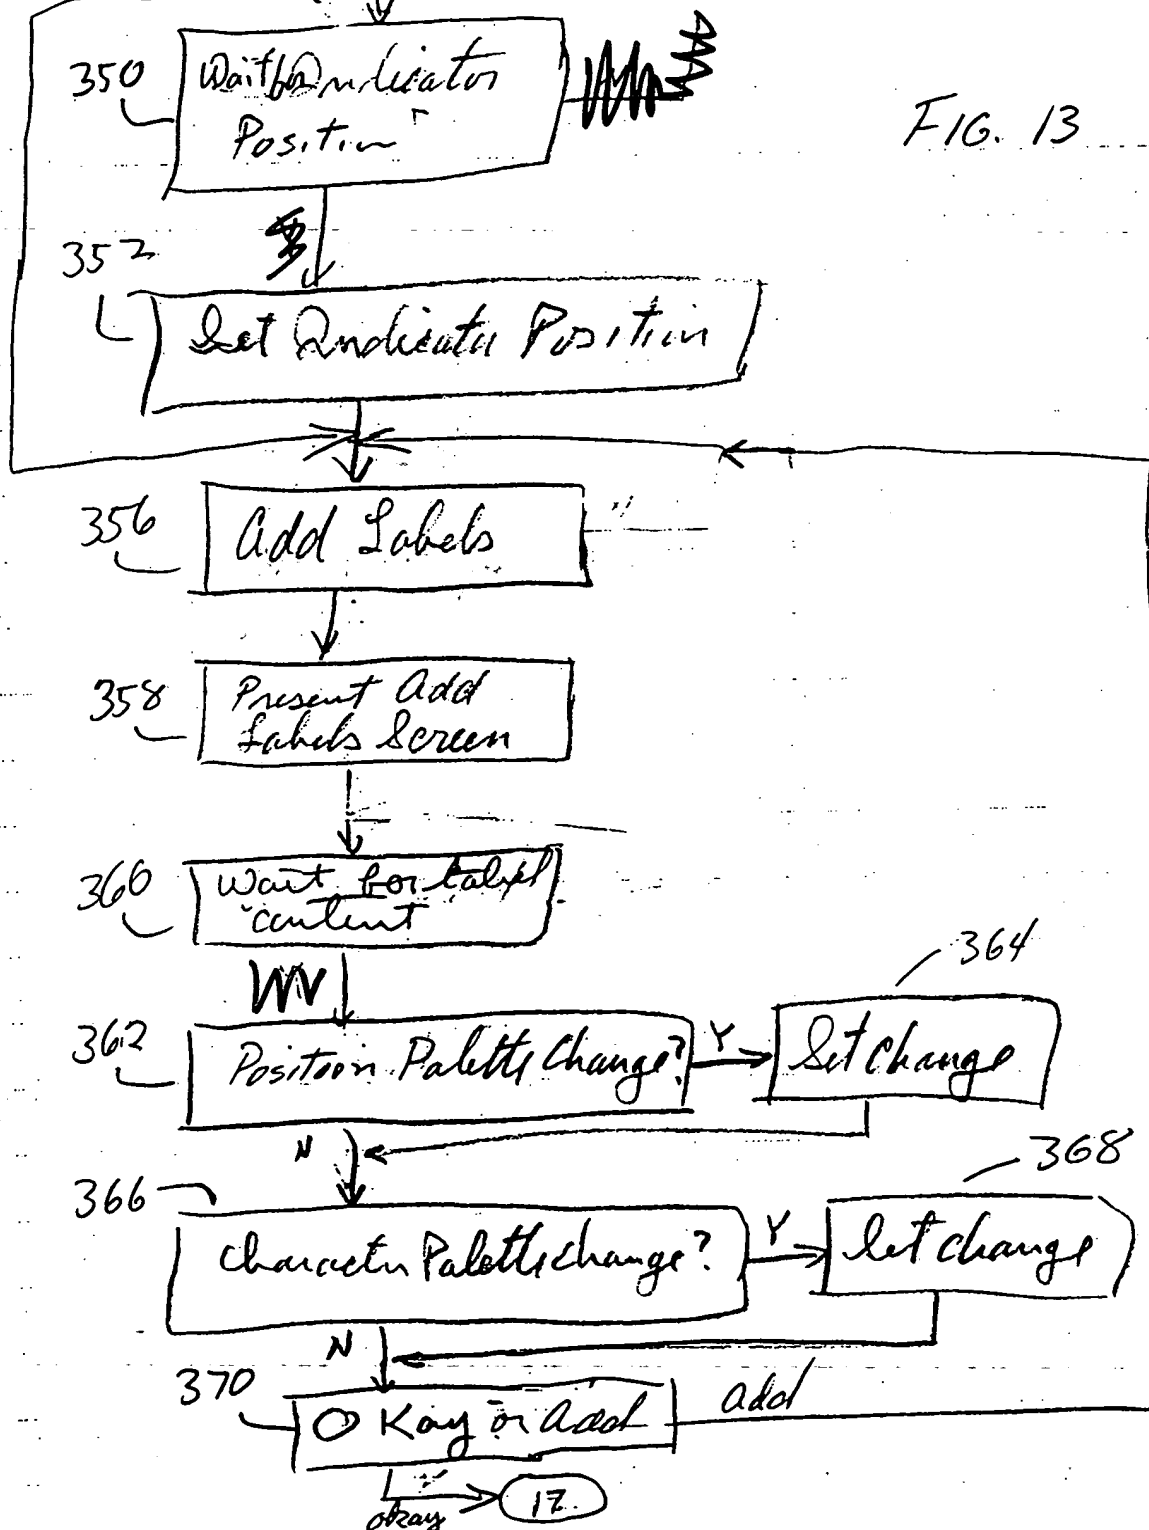 350
Wait for Indicator
Position
FIG. 13
352
Set Indicator Position
356
Add Labels
358
Present Add
Labels Screen
360
Wait for Label
content
364
362
Position Palette Change?
Y
Set change
N
368
366
Character Palette change?
Y
Set change
N
370
O Kay or Add
add
okay
17